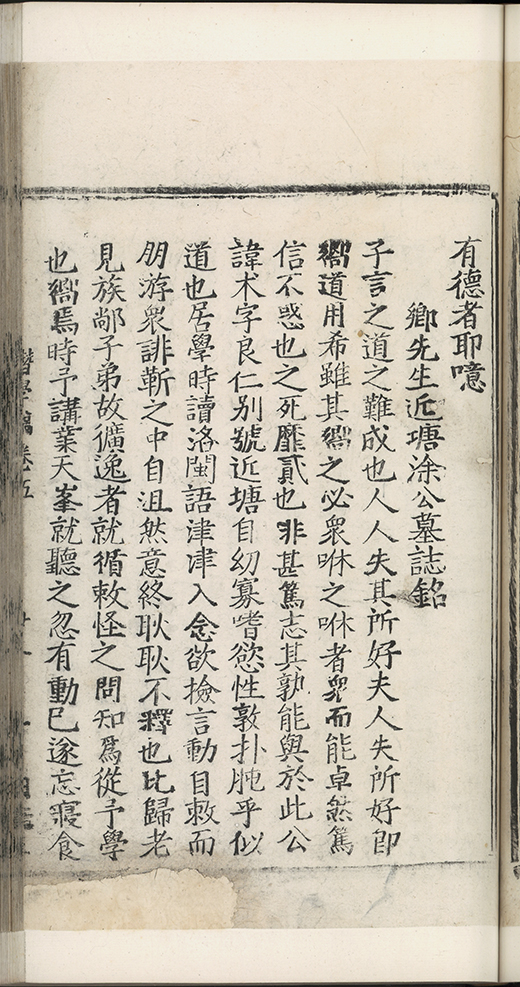 有德者耶噫
鄉先生近塘涂公墓誌銘
子言之道之難成也人人失其所好夫人失所好即
嚮道用希雖其嚮之必衆咻之咻者衆而能卓然篤
信不惑也之死靡貳也非甚篤志其孰能與於此公
諱术字良仁别號近塘自幼寡嗜慾性敦扑肫乎似
道也居學時讀洛閩語津津入念欲撿言動自敕而
朋游衆誹蘄之中自沮然意終耿耿不釋也比歸老
見族鄰子弟故獷逸者就循敕怪之問知爲從予學
也嚮焉時予講業天峯就聽之忽有動巳遂忘寢食
學 卷五